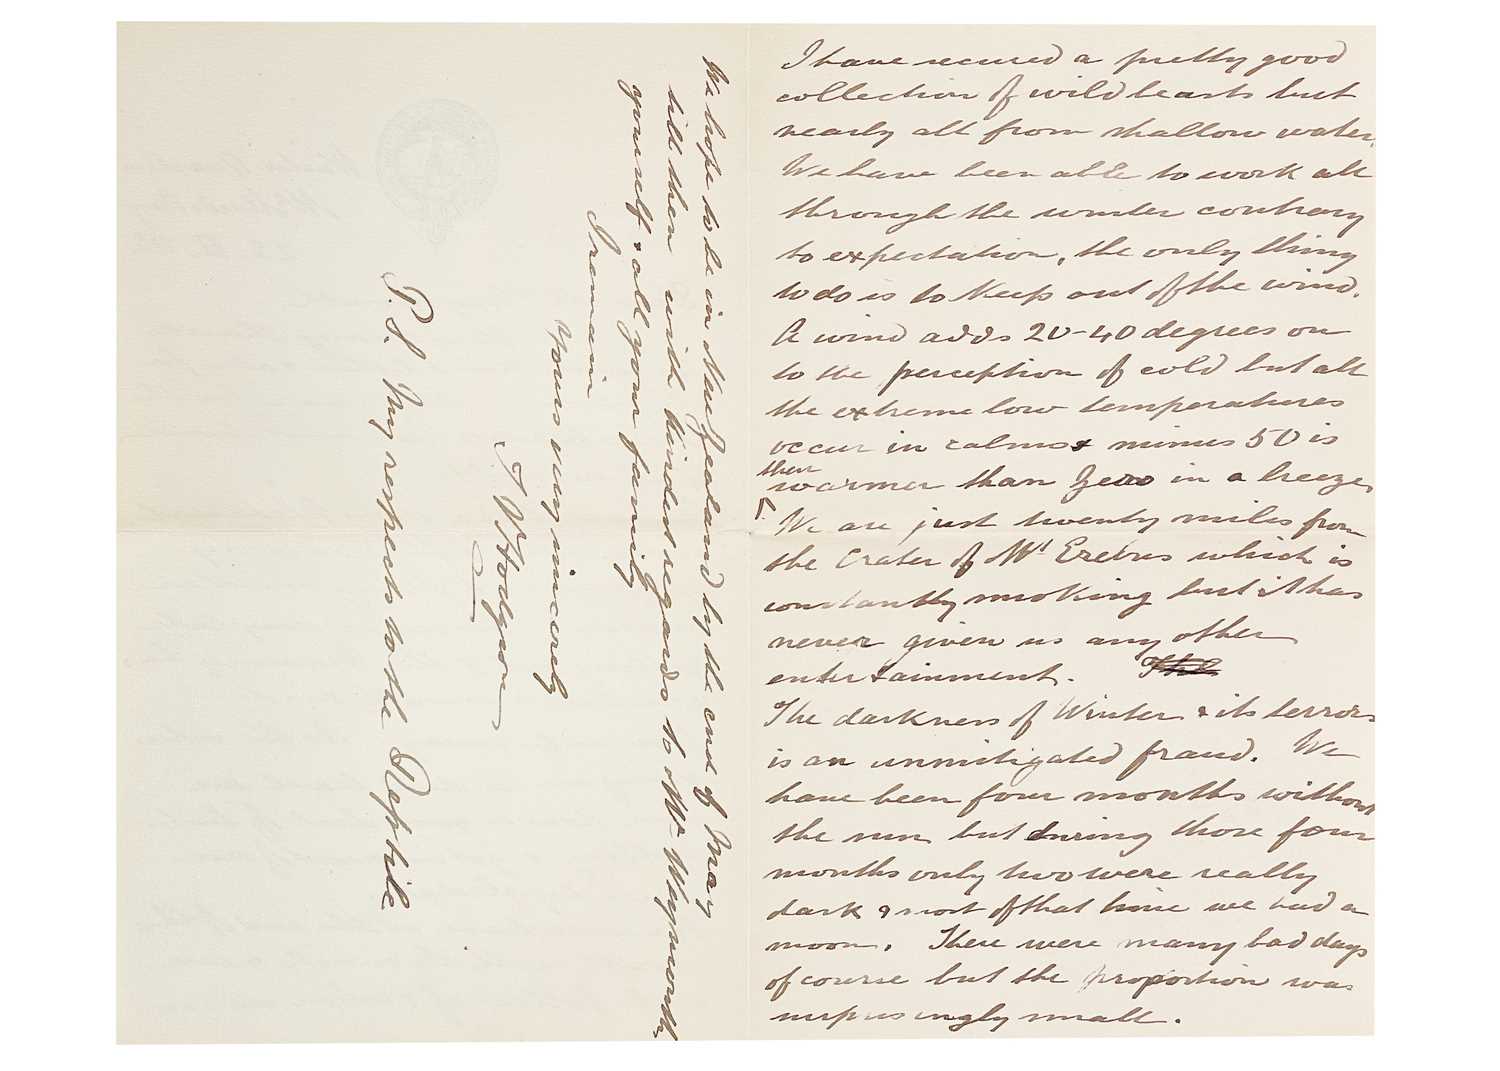 I have secured a pretty good
collection of wild beasts but
nearly all from shallow water.
We have been able to work all
through the winter contrary
to expectation, the only thing
to do is to keep out of the wind.
A wind adds 20-40 degrees on
to the perception of cold but all
the extreme low temperatures
occur in calms & minus 50 is
then
warmer than Zero in a breeze,
We are just twenty miles from
the Crater of Mt Erebus which is
constantly smoking but it has
never given us any other
entertainment. The
The darkness of Winter & its terrors
is an unmitigated fraud. We
have been four months without
the sun but during those four
months only two were really
dark & most of that time we had a
moon. There were many bad days
of course but the proportion was
surprisingly small.
We hope to be in New Zealand by the end of May
till then with kindest regards to Mrs Weymouth
yourself & all your family
I remain
Yours very sincerely
T V Hodgson
P.S. My respects to the Reptile